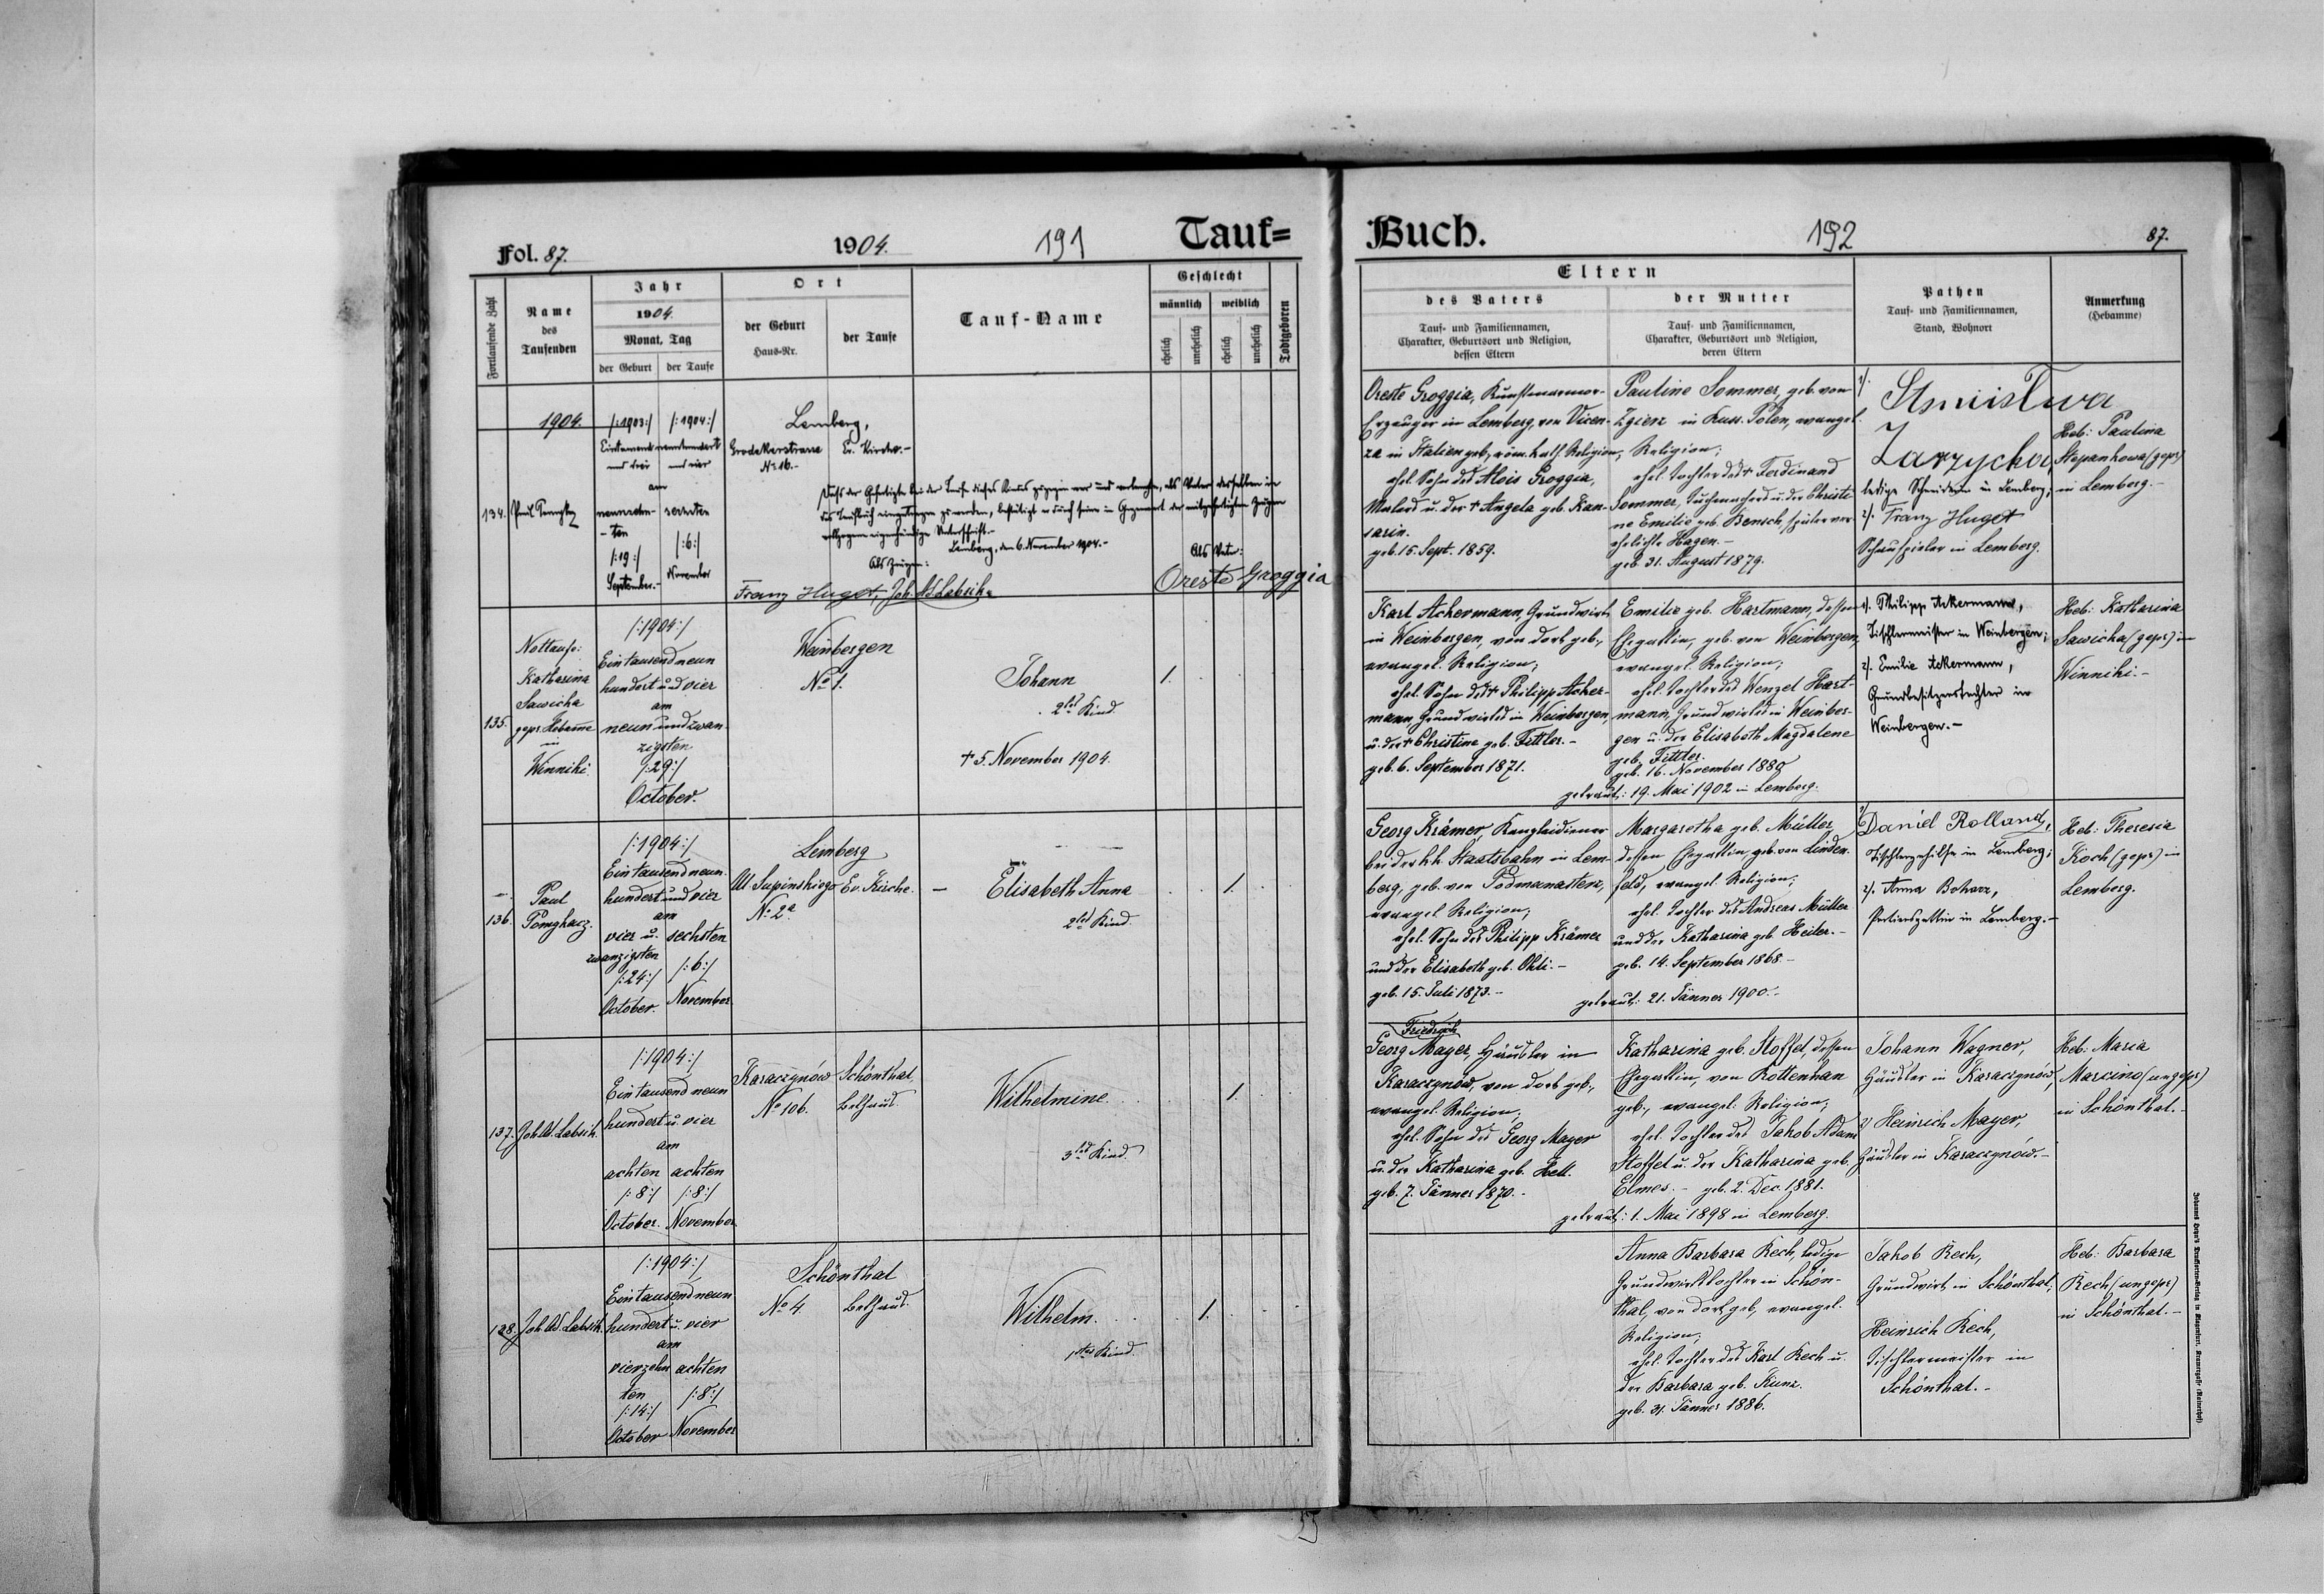 Fol. 87.
1904.
191
Tauf=
Fortlaufende Zahl
Name
des
Taufenden
Jahr
1904.
Monat, Tag
der Geburt
der Taufe
Ort
der Geburt
Haus-Nr.
der Taufe
Tauf-Name
Geschlecht
männlich
weiblich
ehelich
unehelich
ehelich
unehelich
Todtgeboren
1904.
134.
/:1903:/
/:1904:/
Eintausend neunhundert
und drei
und vier
am
neunzehn-
ten
sechsten
/:19:/
/:6:/
September.-
November
Lemberg,
Grodekerstrasse
Nr. 16.-
Ev. Kirche.-
Dass der Gefertigte bei der Taufe dieses Kindes zugegen war und verlangte, als Vater desselben in
das Taufbuch eingetragen zu werden, bestätigt er durch seine in Gegenwart der mitgefertigten Zeugen
vollzogene eigenhändige Unterschrift.-
Lemberg, den 6. November 1904.-
Als Zeugen:
Als Vater:
Franz Huget, Joh. Ad. Labsik.
Oreste Groggia
135.
Nottaufe:
Katharina
Sawicha
gepr. Hebamme
in
Winniki
/:1904:/
Eintausend neun
hundert und vier
am
neun und zwan-
zigsten
/:29:/
October.
Weinbergen
No 1.
Johann
2tes Kind.
† 5. November 1904.
1.
136.
Paul
/:1904:/
Eintausend neun-
hundert und vier
am
vier u.
zwanzigsten
sechsten
/:24:/
/:6:/
October.
November
Lemberg
Ul. Supinskiego
No 2a
Ev. Kirche.
Elisabeth Anna
2tes Kind.
1.
137.
Joh. Ad. Labsik.
/:1904:/
Eintausend neun
hundert u. vier
am
achten
achten
/:8:/
/:8:/
October.
November
Karaczynów
No 106.
Schönthal,
Bethaus.
Wilhelmine.
3tes Kind.
1.
138.
Joh. Ad. Labsik.
/:1904:/
Eintausend neun
hundert u. vier
am
vierzehn
ten
achten
/:14:/
/:8:/
October
November
Schönthal
No 4.
Bethaus.
Wilhelm.
1tes Kind.
1.
Buch.
192
87.
Eltern
des Vaters
Tauf- und Familiennamen,
Charakter, Geburtsort und Religion,
dessen Eltern
der Mutter
Tauf- und Familiennamen,
Charakter, Geburtsort und Religion,
deren Eltern
Pathen
Tauf- und Familiennamen,
Stand, Wohnort
Anmerkung
(Hebamme)
Oreste Groggia, Kunstmarmor-
Erzeuger in Lemberg, von Vicen-
za in Italien geb., röm. kath. Religion,
ehel. Sohn des Alois Groggia,
Malers u. der † Angela geb. Kan-
sarin.
geb. 15. Sept. 1859.
Pauline Sommer, geb. von
Zgierz in Russ. Polen, evangel.
Religion;
ehel. Tochter des † Ferdinand
Sommer, Tuchmachers u. der Christi-
ne Emilie geb. Bensch, später ver-
ehelichte Hagen.-
geb. 31. August 1879.
1/.
Zarzycka,
ledige Schneiderin in Lemberg;
2/. Franz Huget
Schauspieler in Lemberg.
Heb: Paulina
Stepankowa (gepr)
in Lemberg.-
Karl Ackermann, Grundwirth
in Weinbergen, von dort geb.,
evangel. Religion;
ehel. Sohn des † Philipp Acker-
mann, Grundwirtes in Weinbergen,
u. der † Christine geb. Fittler.-
geb. 6. September 1871.
Emilie geb. Hartmann, dessen
Ehegattin, geb. von Weinbergen,
evangel. Religion;
ehel. Tochter des Wenzel Hart-
mann, Grundwirtes in Weinber-
gen u. der Elisabeth Magdalene
geb. Fittler.
geb. 16. November 1880
getraut: 19. Mai 1902 in Lemberg.
1/. Philipp Ackermann,
Tischlermeister in Weinbergen;
2/. Emilie Ackermann,
Grundbesitzerstochter in
Weinbergen.-
Heb: Katharina
Sawicka (gepr) in
Winniki.-
Georg Krämer, Kanzleidiener
bei der k.k. Staatsbahn in Lem-
berg, geb. von Podmanasterz,
evangel. Religion;
ehel. Sohn des Philipp Krämer
und der Elisabeth geb. Ohli.-
geb. 15. Juli 1873.-
Margaretha geb. Müller
dessen Ehegattin, geb. von Linden-
feld, evangel. Religion;
ehel. Tochter des Andreas Müller
und der Katharina geb. Heiler.-
geb. 14. September 1868.-
getraut: 21. Jänner 1900.-
1/ Daniel Rolland,
Tischlergehilfe in Lemberg;
2/. Anna
Portiersgattin in Lemberg.-
Heb: Theresia
Koch (gepr) in
Lemberg.
Friedrich
Georg Mayer, Häusler in
Karaczynów, von dort geb.,
evangel. Religion;
ehel. Sohn des Georg Mayer
u. der Katharina geb. Hell.
geb. 7. Jänner 1870.-
Katharina geb. Stoffel, dessen
Ehegattin, von Rottenhan
geb., evangel. Religion;
ehel. Tochter des Jakob Adam
Stoffel u. der Katharina geb.
Elmes.- geb. 2. Dec. 1881.
getraut: 1. Mai 1898 in Lemberg.
Johann Wagner,
Häusler in Karaczynów,
2/ Heinrich Mayer,
Häusler in Karaczynów.-
Heb: Maria
Marcino (ungepr)
in Schönthal.-
Anna Barbara Rech, ledige
Grundwirthstochter in Schön-
thal, von dort geb., evangel.
Religion;
ehel. Tochter des Karl Rech u.
der Barbara geb. Kunz.
geb. 31. Jänner 1886.
Jakob Rech,
Grundwirt in Schönthal;
Heinrich Rech,
Tischlermeister in
Schönthal.-
Heb: Barbara
Rech (ungepr)
in Schönthal.-